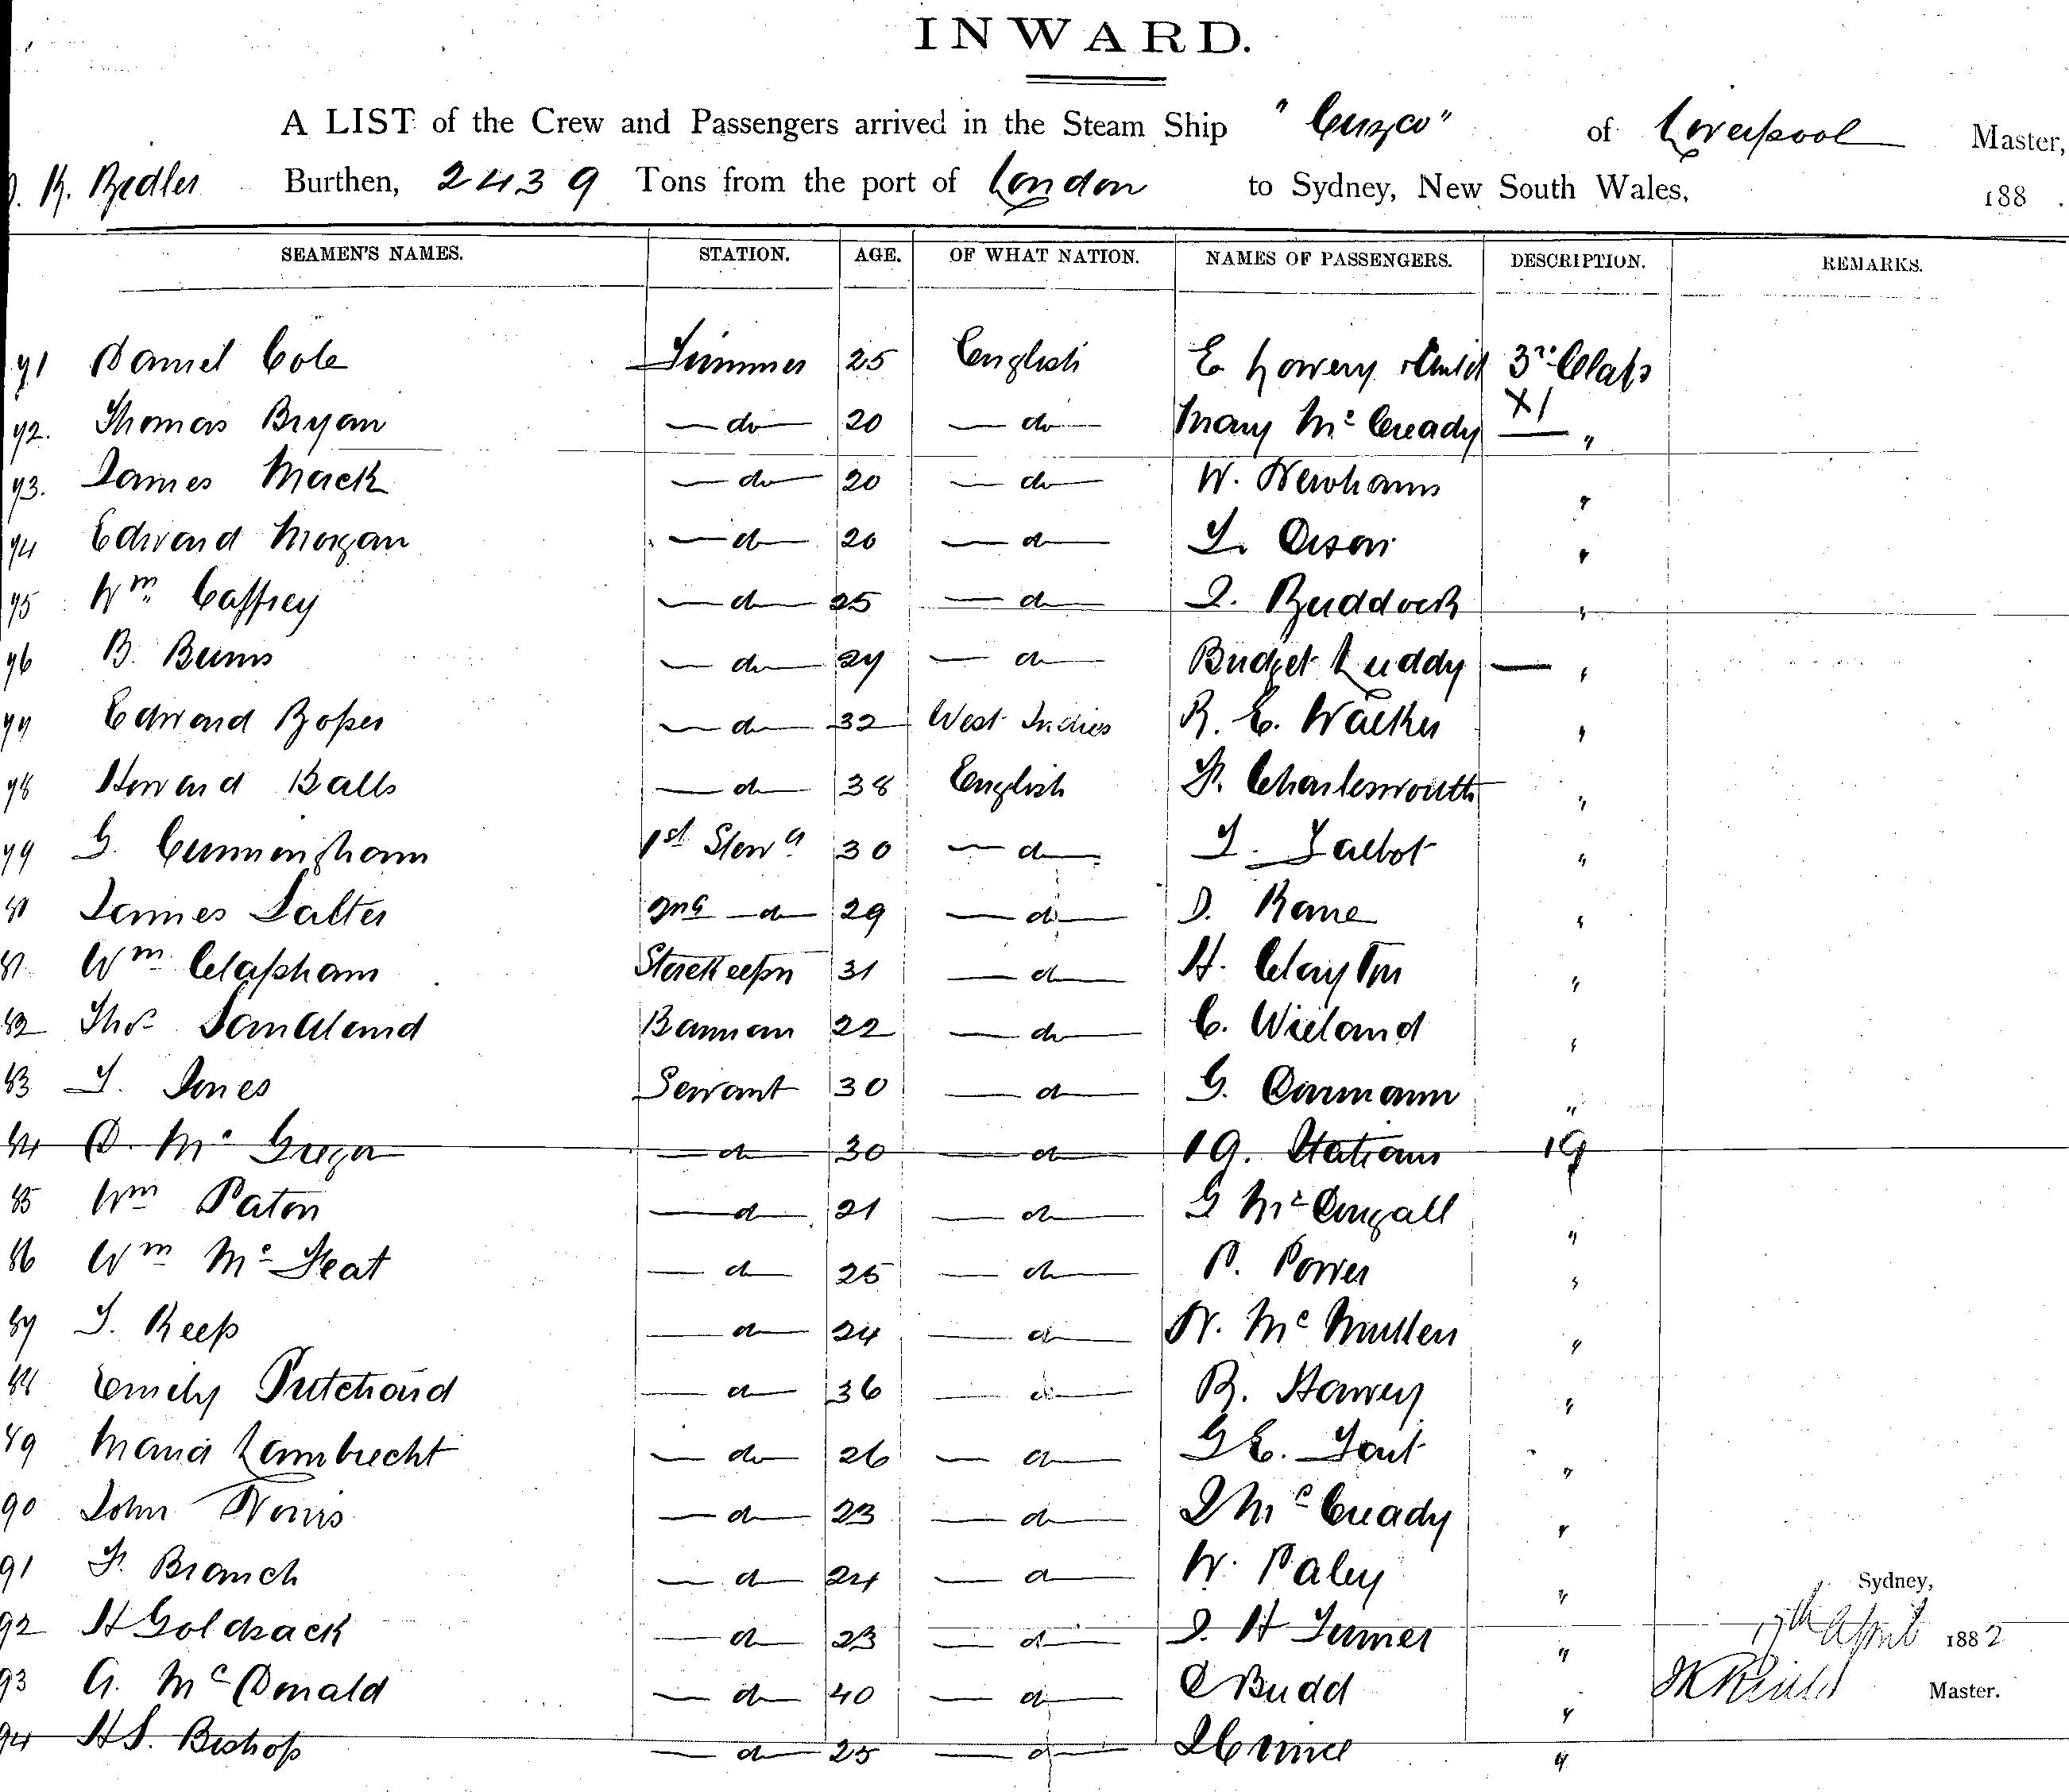 INWARD.
A LIST of the Crew and Passengers arrived in the Steam Ship "Cuzco" of Liverpool Master,
Burthen, 2439 Tons from the port of London to Sydney, New South Wales, 188 .
SEAMEN'S NAMES. STATION. AGE. OF WHAT NATION. NAMES OF PASSENGERS. DESCRIPTION. REMARKS.
71 Daniel Cole Trimmer 25 English E Lowery & Child 3rd Class
X1
72. Thomas Bryan — do — 20 — do — Mary Mc Cready — "
73. James Mack — do — 20 — do — W. Newham "
74 Edward Morgan — do — 20 — do — "
75 Wm Caffrey — do — 25 — do — J. Ruddock "
76 B. Burns — do — 27 — do — Bridget Luddy — "
77 Edward Roper — do — 32 West Indies R. E. Walker "
78 Howard Balls — do — 38 English F. Charlesworth "
79 G. Cunningham 1st Stewd 30 — do — T. Talbot "
80 James Salter 2nd — do — 29 — do — D. Kane "
81 Wm Clapham Storekeepr 31 — do — H. Clayton "
82 Thos Sandland Barman 22 — do — C. Wieland "
83 T. Jones Servant 30 — do — G. "
84 D. Mc Gregor — do — 30 — do — 19. Italians 19
85 Wm Paton — do — 21 — do — G McDougall "
86 Wm Mc — do — 25 — do — P. Power "
87 T. Keep — do — 24 — do — N. Mc Mullen "
88 Emily Pritchard — do — 36 — do — R. Harvey "
89 Maria Lambrecht — do — 26 — do — G E. Tait "
90 John Norris — do — 23 — do — J McCready "
91 F. Branch — do — 24 — do — W. Paley "
Sydney,
92 H Goldsack — do — 23 — do — J. H Turner " 17th April 1882
93 A. McDonald — do — 40 — do — C Budd " Master.
94 H S. Bishop — do — 25 — do — "